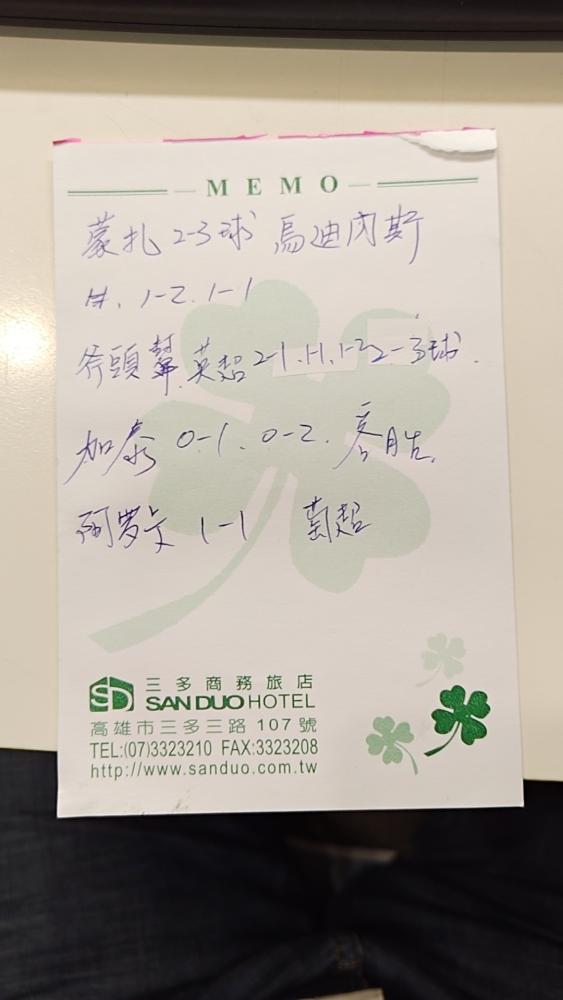 MEMO
蒙扎 2-3球 馬迪内斯
1-2. 1-1
斧頭幫. 英超 2-1. 1-1. 1-2 2-3球.
加泰 0-1. 0-2. 客胜.
阿罗卡 1-1 葡超
SD 三多商務旅店
SANDUO HOTEL
高雄市三多三路 107 號
TEL:(07)3323210 FAX:3323208
http://www.sanduo.com.tw